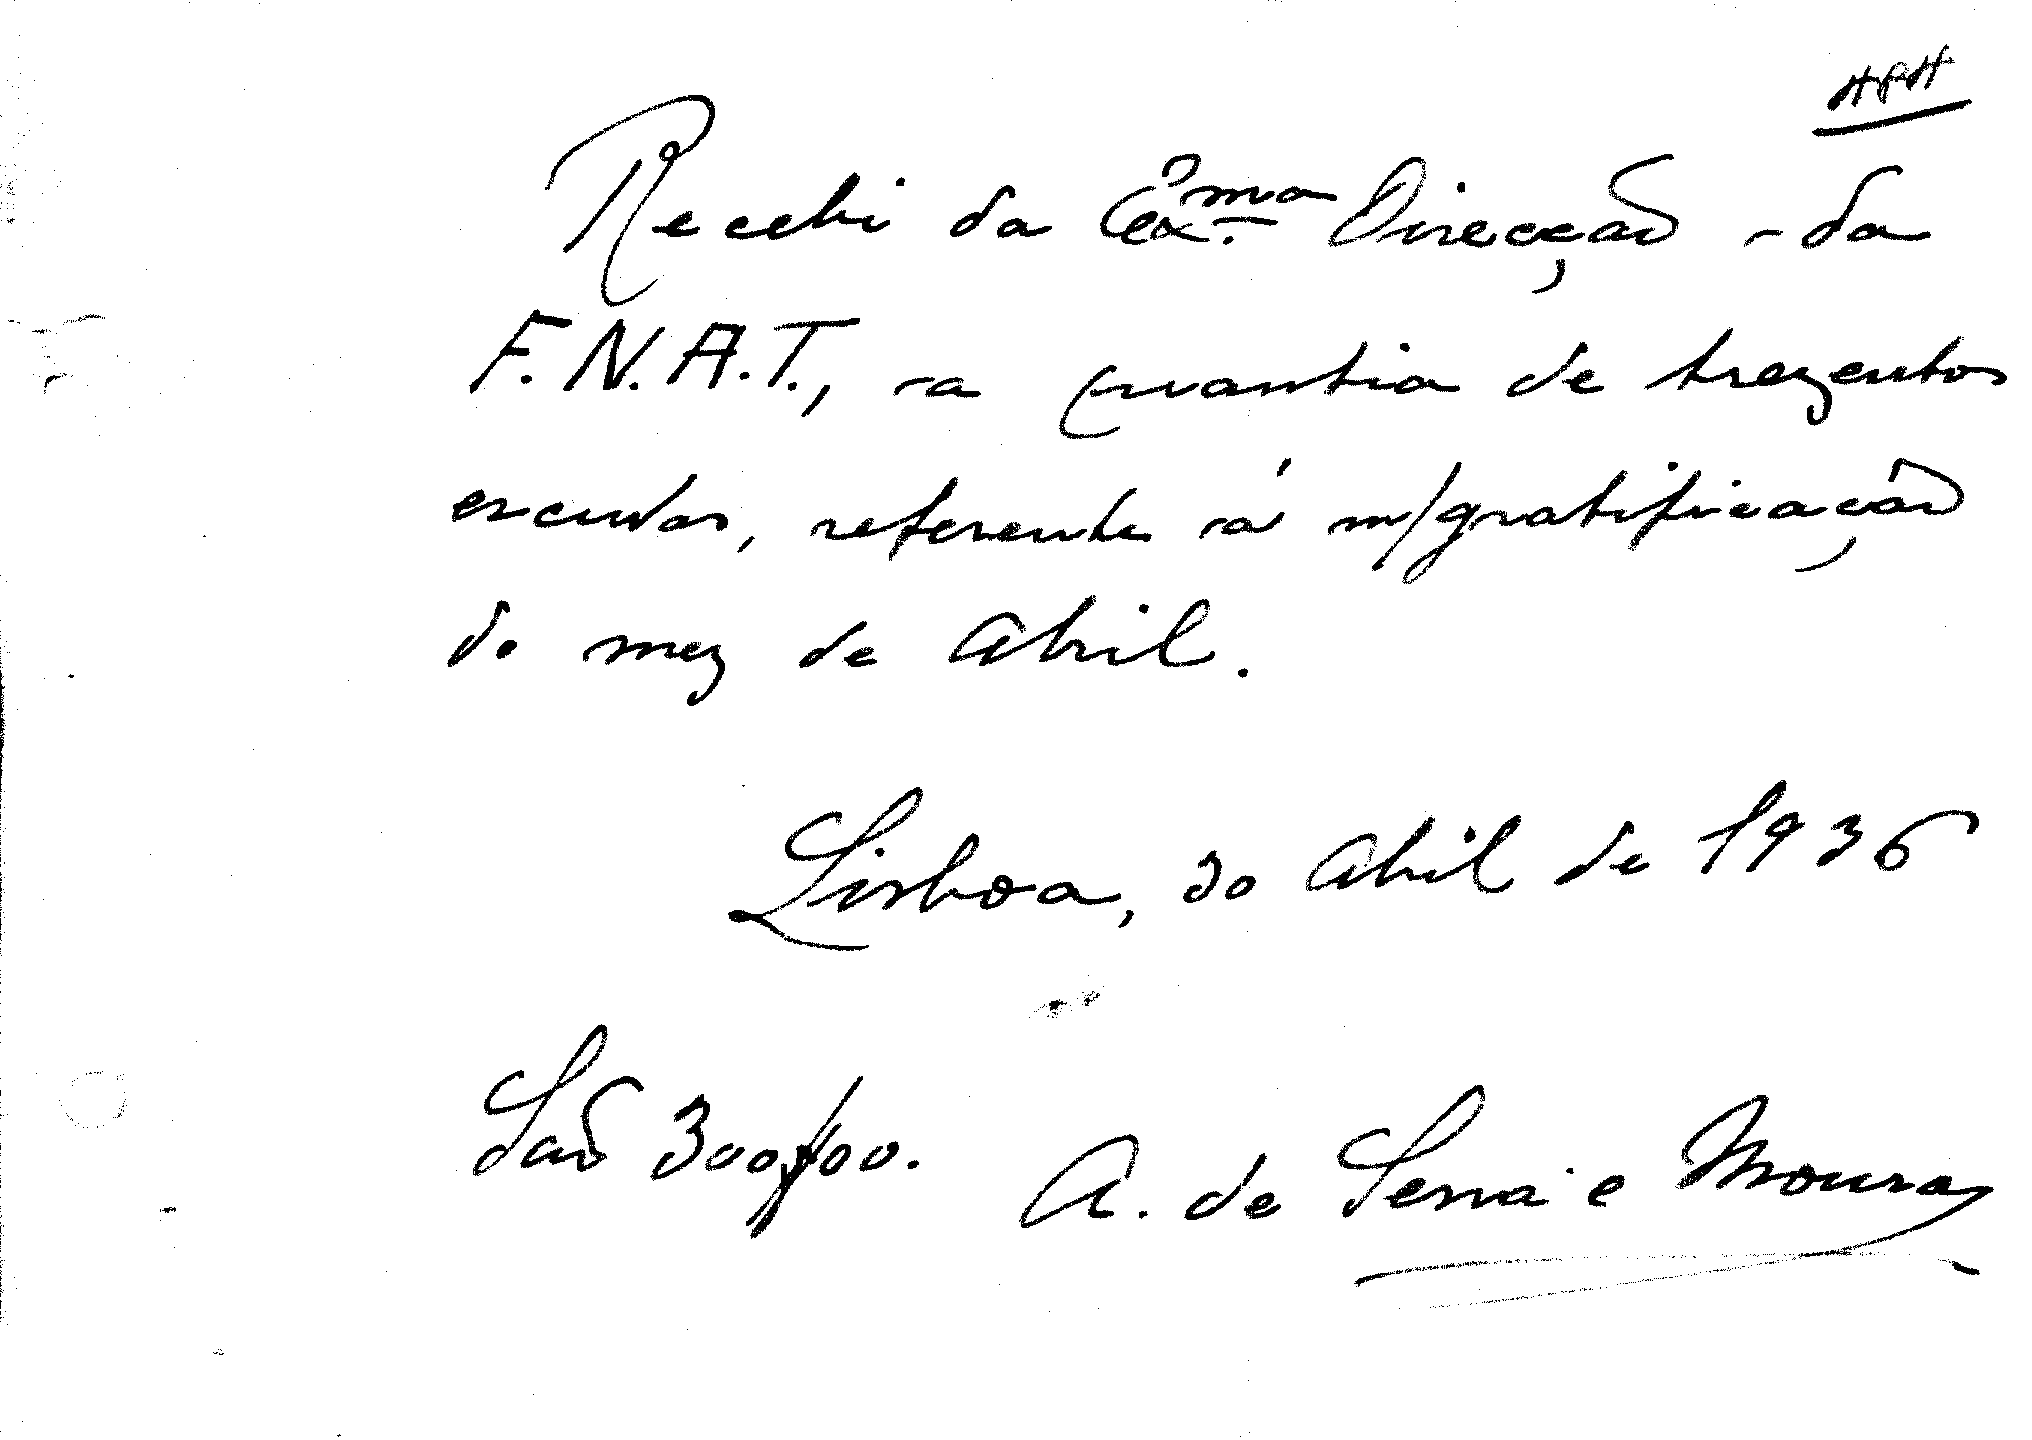 Recebi da Exma. Direcção da
F.N.A.T., a quantia de trezentos
escudos, referente á m/gratificação
do mez de Abril.
Lisboa, 30 Abril de 1936
São 300$00.
A. de Senna e Moura